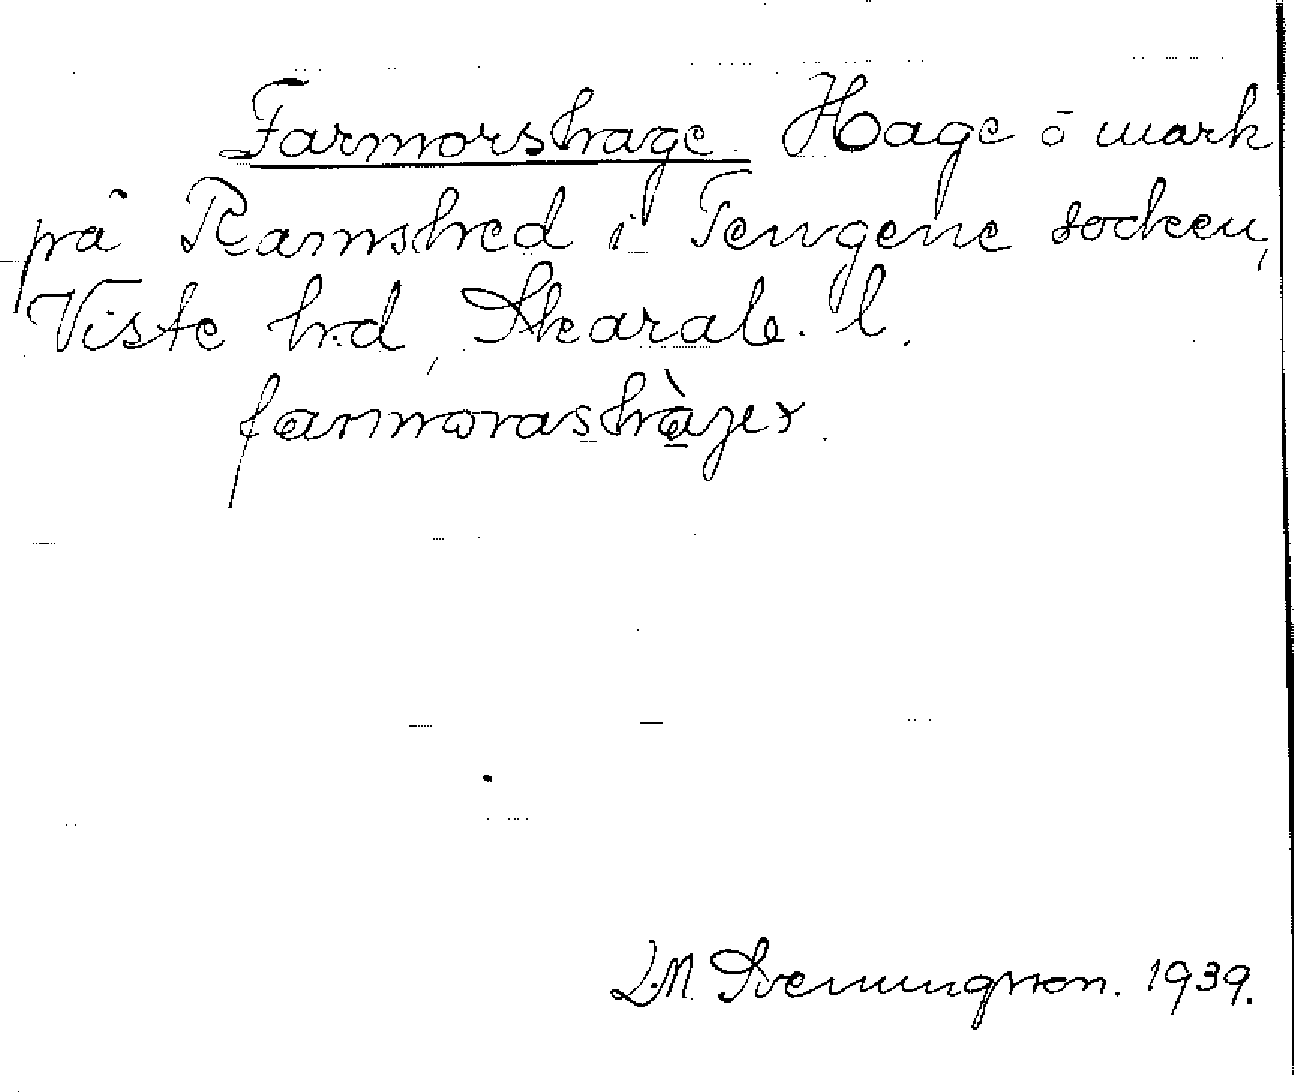 Farmorshage Hage o mark
på Ramshed i Tengene socken,
Viste hd, Skarab. l.
farmorashàger.
L.M. Svenungsson. 1939.